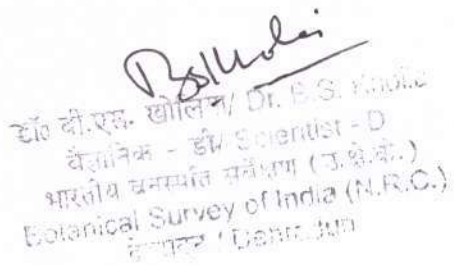 BSKholia
डॉ बी.एस. खोलिया/ Dr. B.S. Kholia
वैज्ञानिक - डी/ Scientist - D
भारतीय वनस्पति सर्वेक्षण (उ.क्षे.के.)
Botanical Survey of India (N.R.C.)
देहरादून / Dehradun